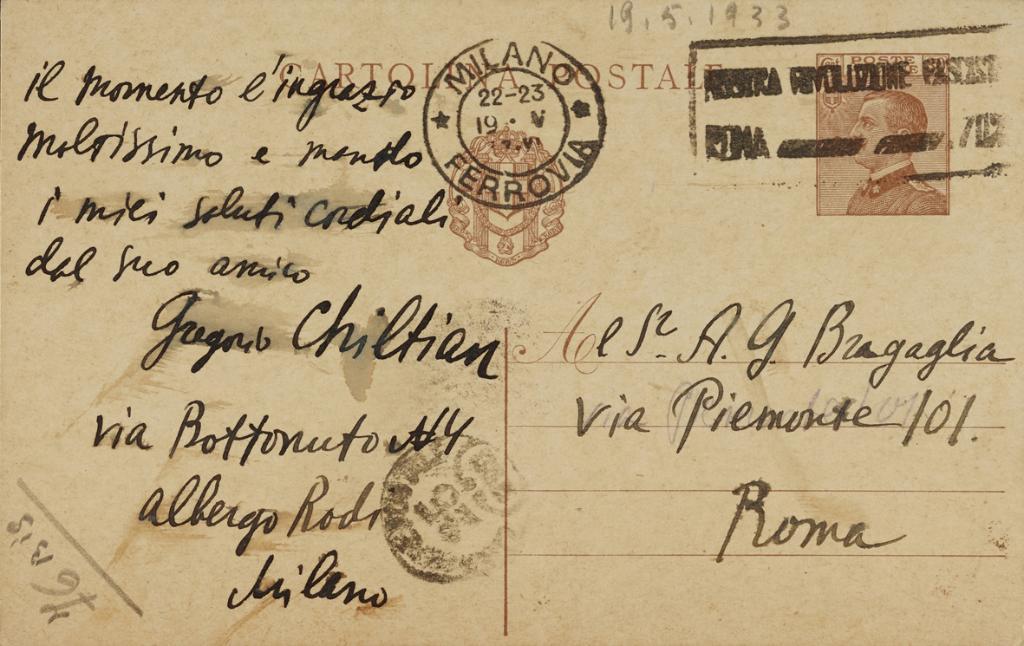 19.5.1933
CARTOLINA POSTALE
MILANO
22-23
19 · V
FERROVIA
POSTE
MOSTRA RIVOLUZIONE FASCIST
ROMA
il momento l'ingrazio
moltissimo e mando
i miei saluti cordiali,
dal suo amico
Gregorio Chiltian
via Bottonuto N4
albergo Rodi
Milano
Al Sr. A. G. Bragaglia
via Piemonte 101.
Roma
76 Bis